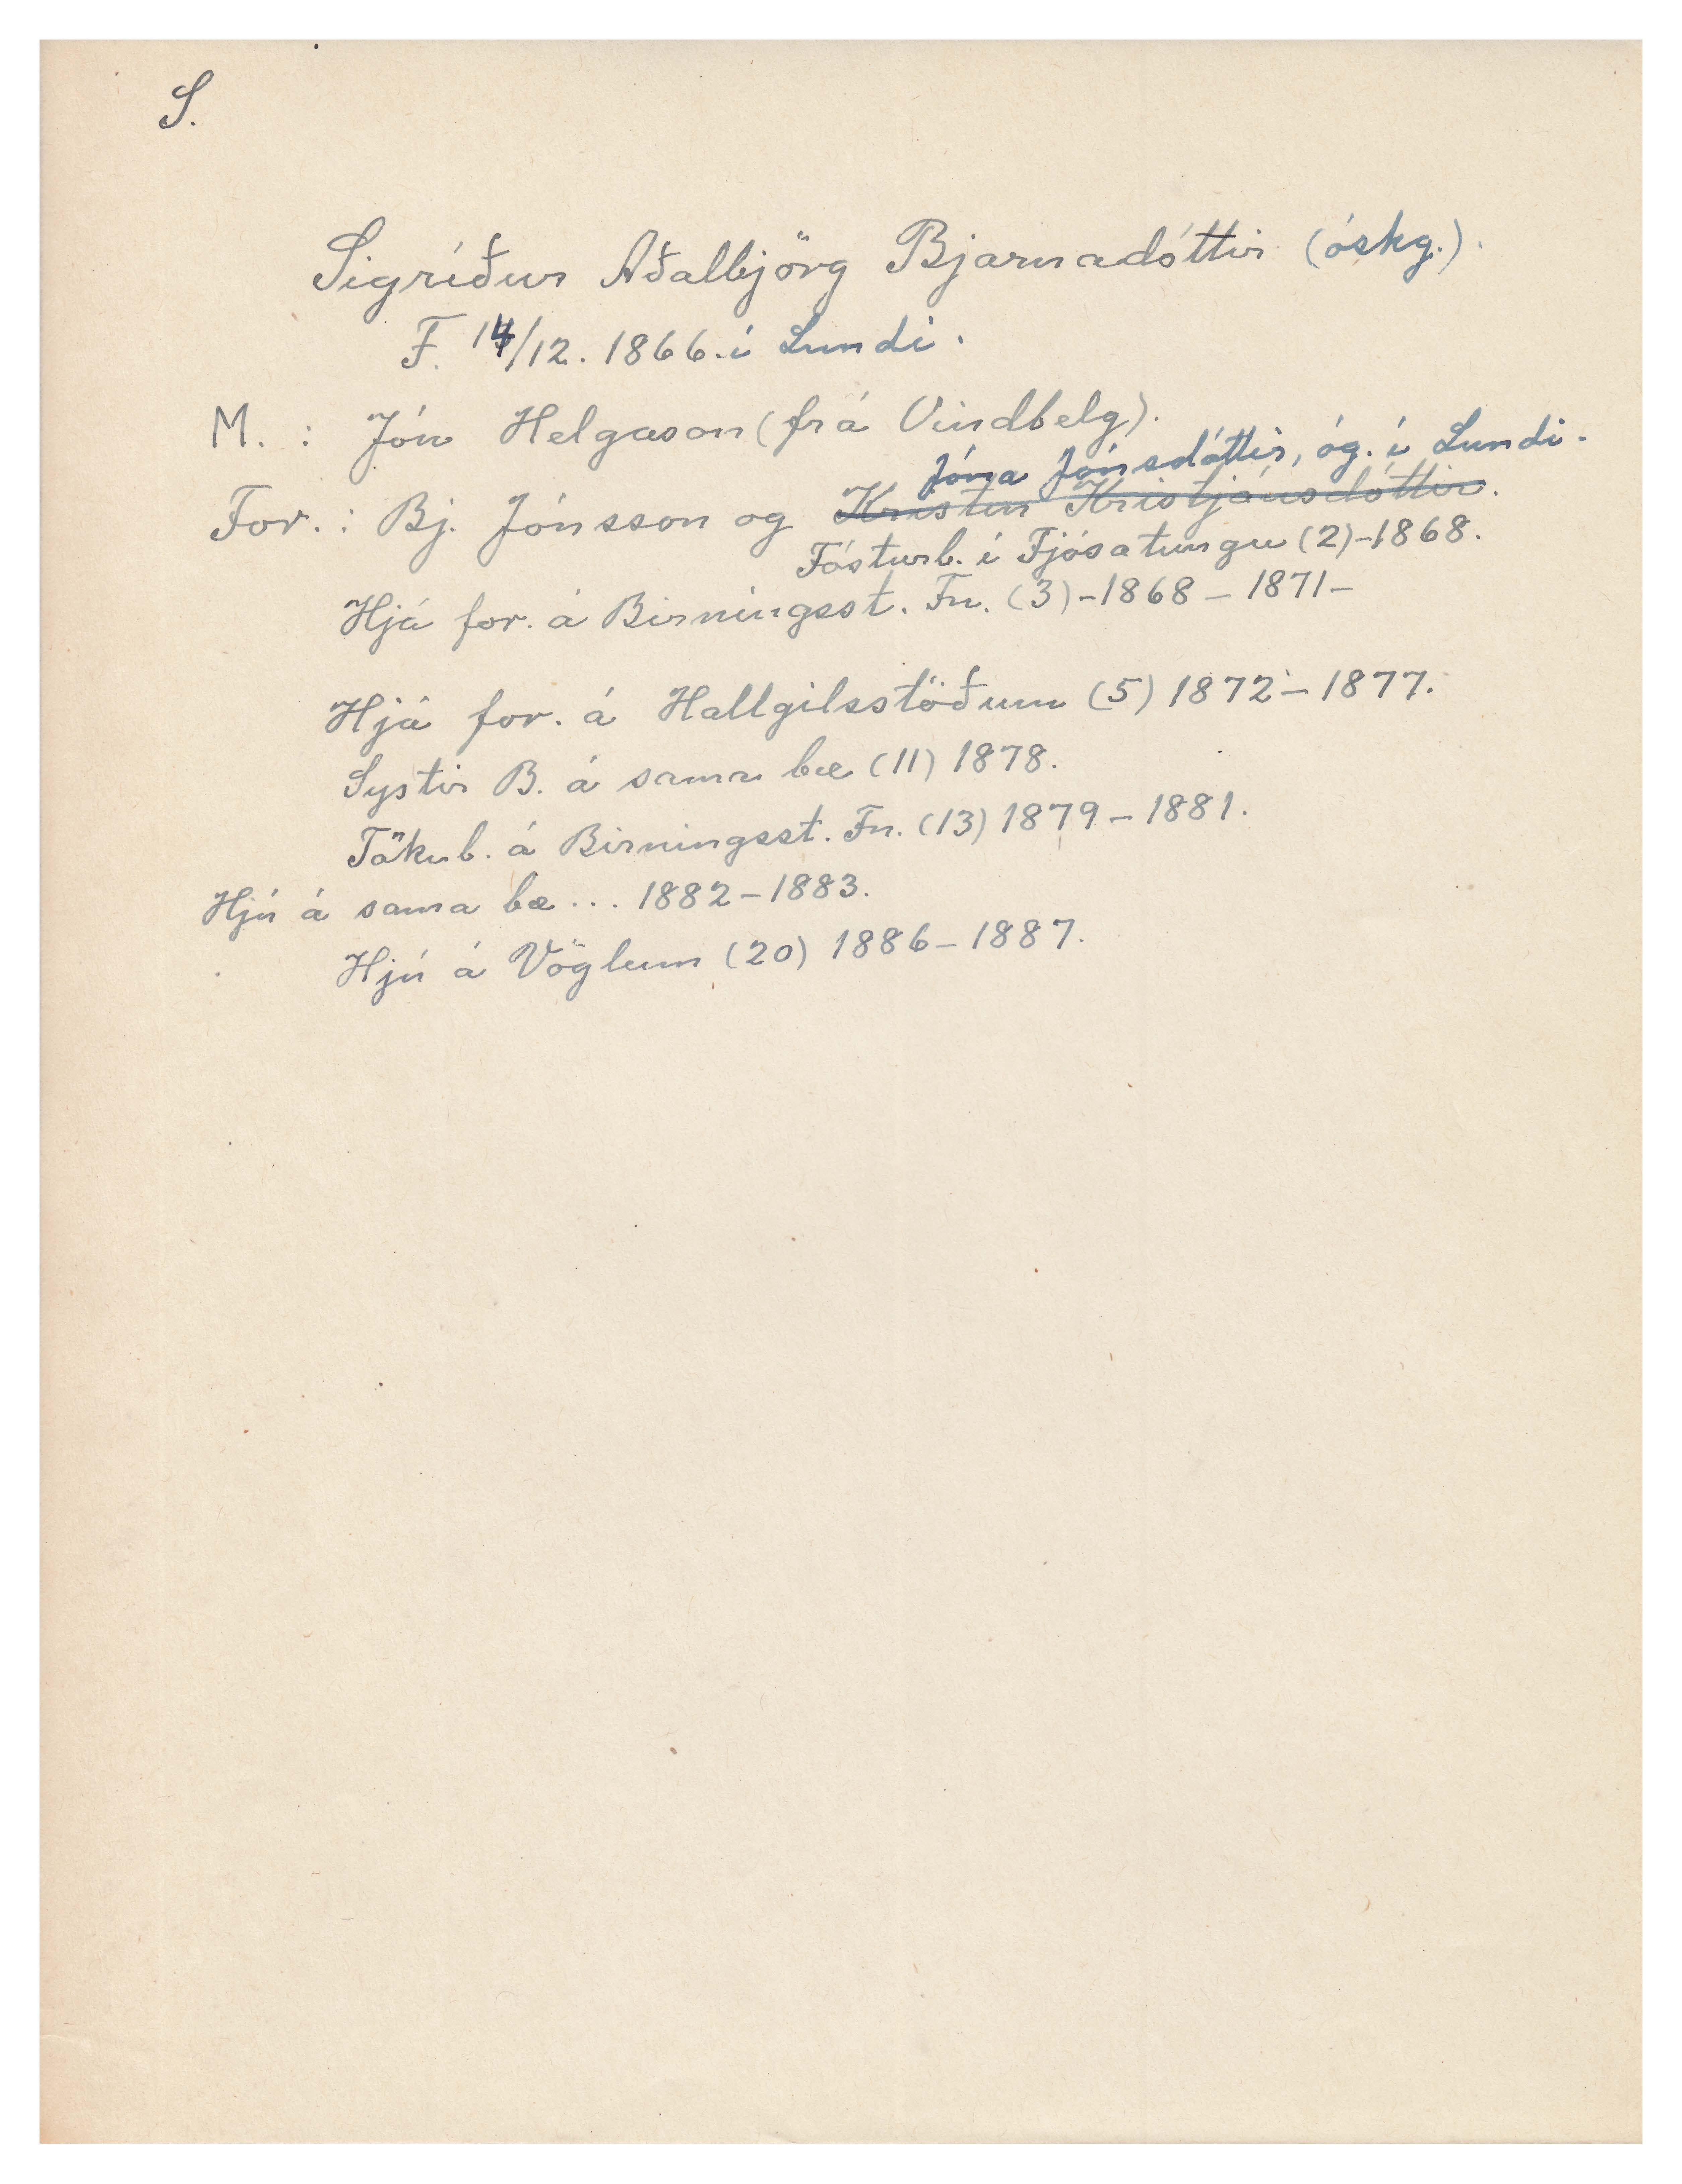 S.
Sigríður Aðalbjörg Bjarnadóttir (óskg.).
F. 14/12. 1866. í Lundi.
M. : Jón Helgason (frá Vindbelg).
Jóna Jónsdóttir, óg. í Lundi.
For. : Bj. Jónsson og Kristín Kristjánsdóttir.
Fósturb. í Fjósatungu (2)-1868.
Hjá for. á Birningsst. Fn. (3)-1868 - 1871-
Hjá for. á Hallgilsstöðum (5) 1872 - 1877.
Systir B. á sama bæ (11) 1878.
Tökub. á Birningsst. Fn. (13) 1879 - 1881.
Hjú á sama bæ ... 1882 - 1883.
Hjú á Vöglum (20) 1886 - 1887.